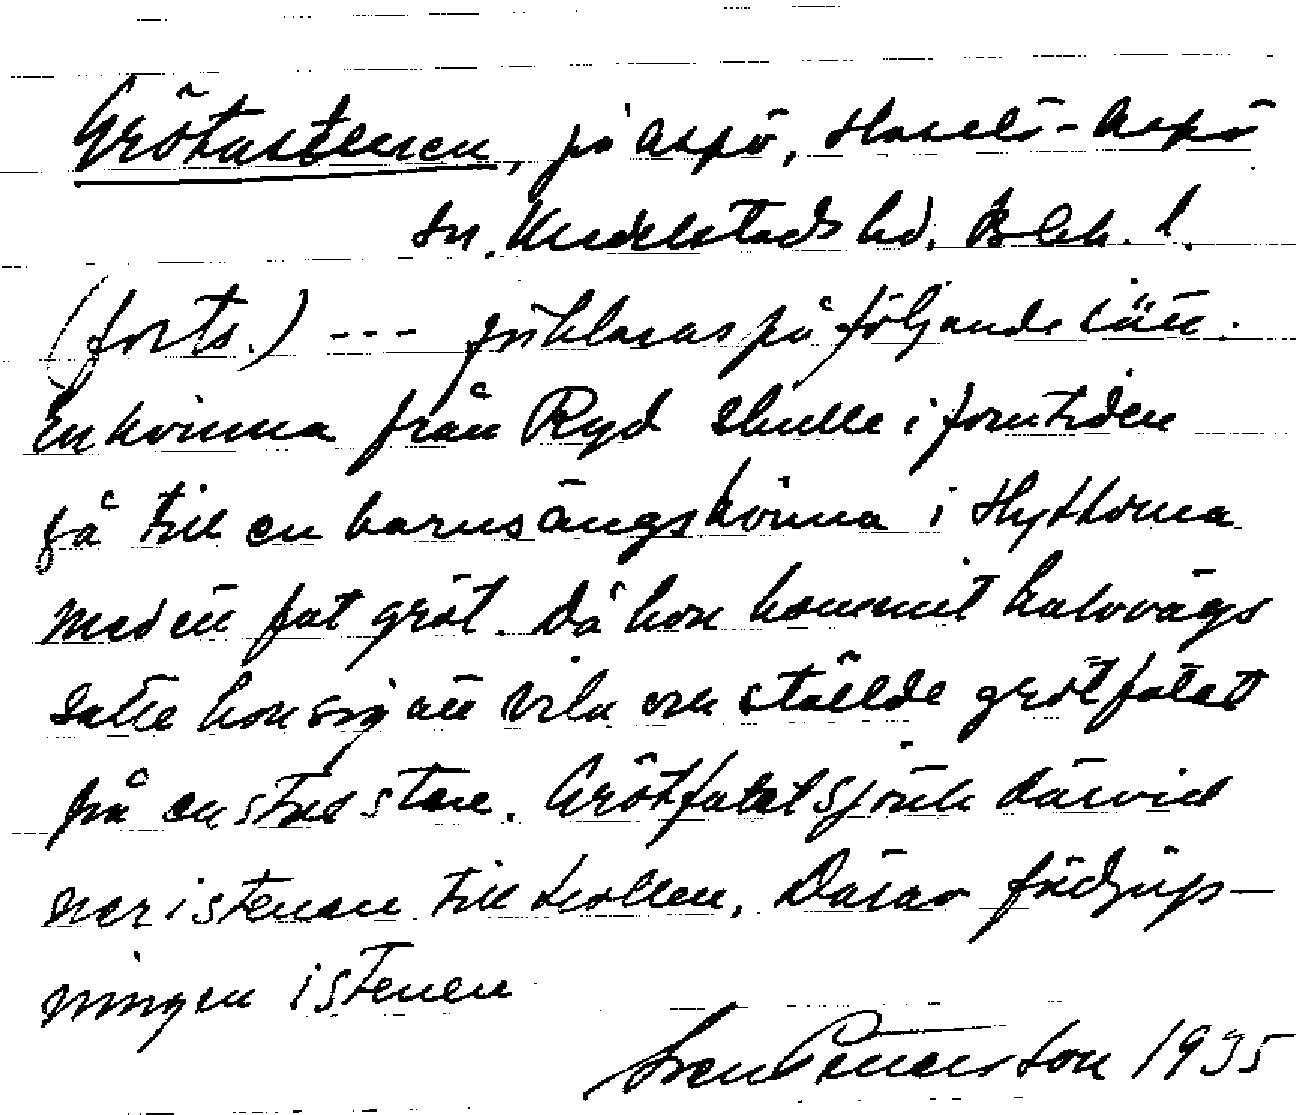 Grötastenen, på Aspö, Hasslö-Aspö
sn. Medelstads hd. Blek. l.
(forts.) --- förklaras på följande sätt.
En kvinna från Ryd skulle i forntiden
gå till en barnsängskvinna i Hyttorna
med ett fat gröt. Då hon kommit halvvägs
satte hon sig att vila och ställde grötfatet
på en stor sten. Grötfatet sjönk därvid
ner i stenen till trollen. Därav fördjup-
ningen i stenen
Sven 1935